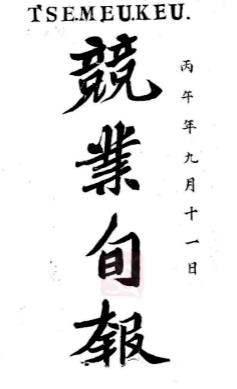 TSE.M EU.K EU.
競業旬報
丙午年九月十一日